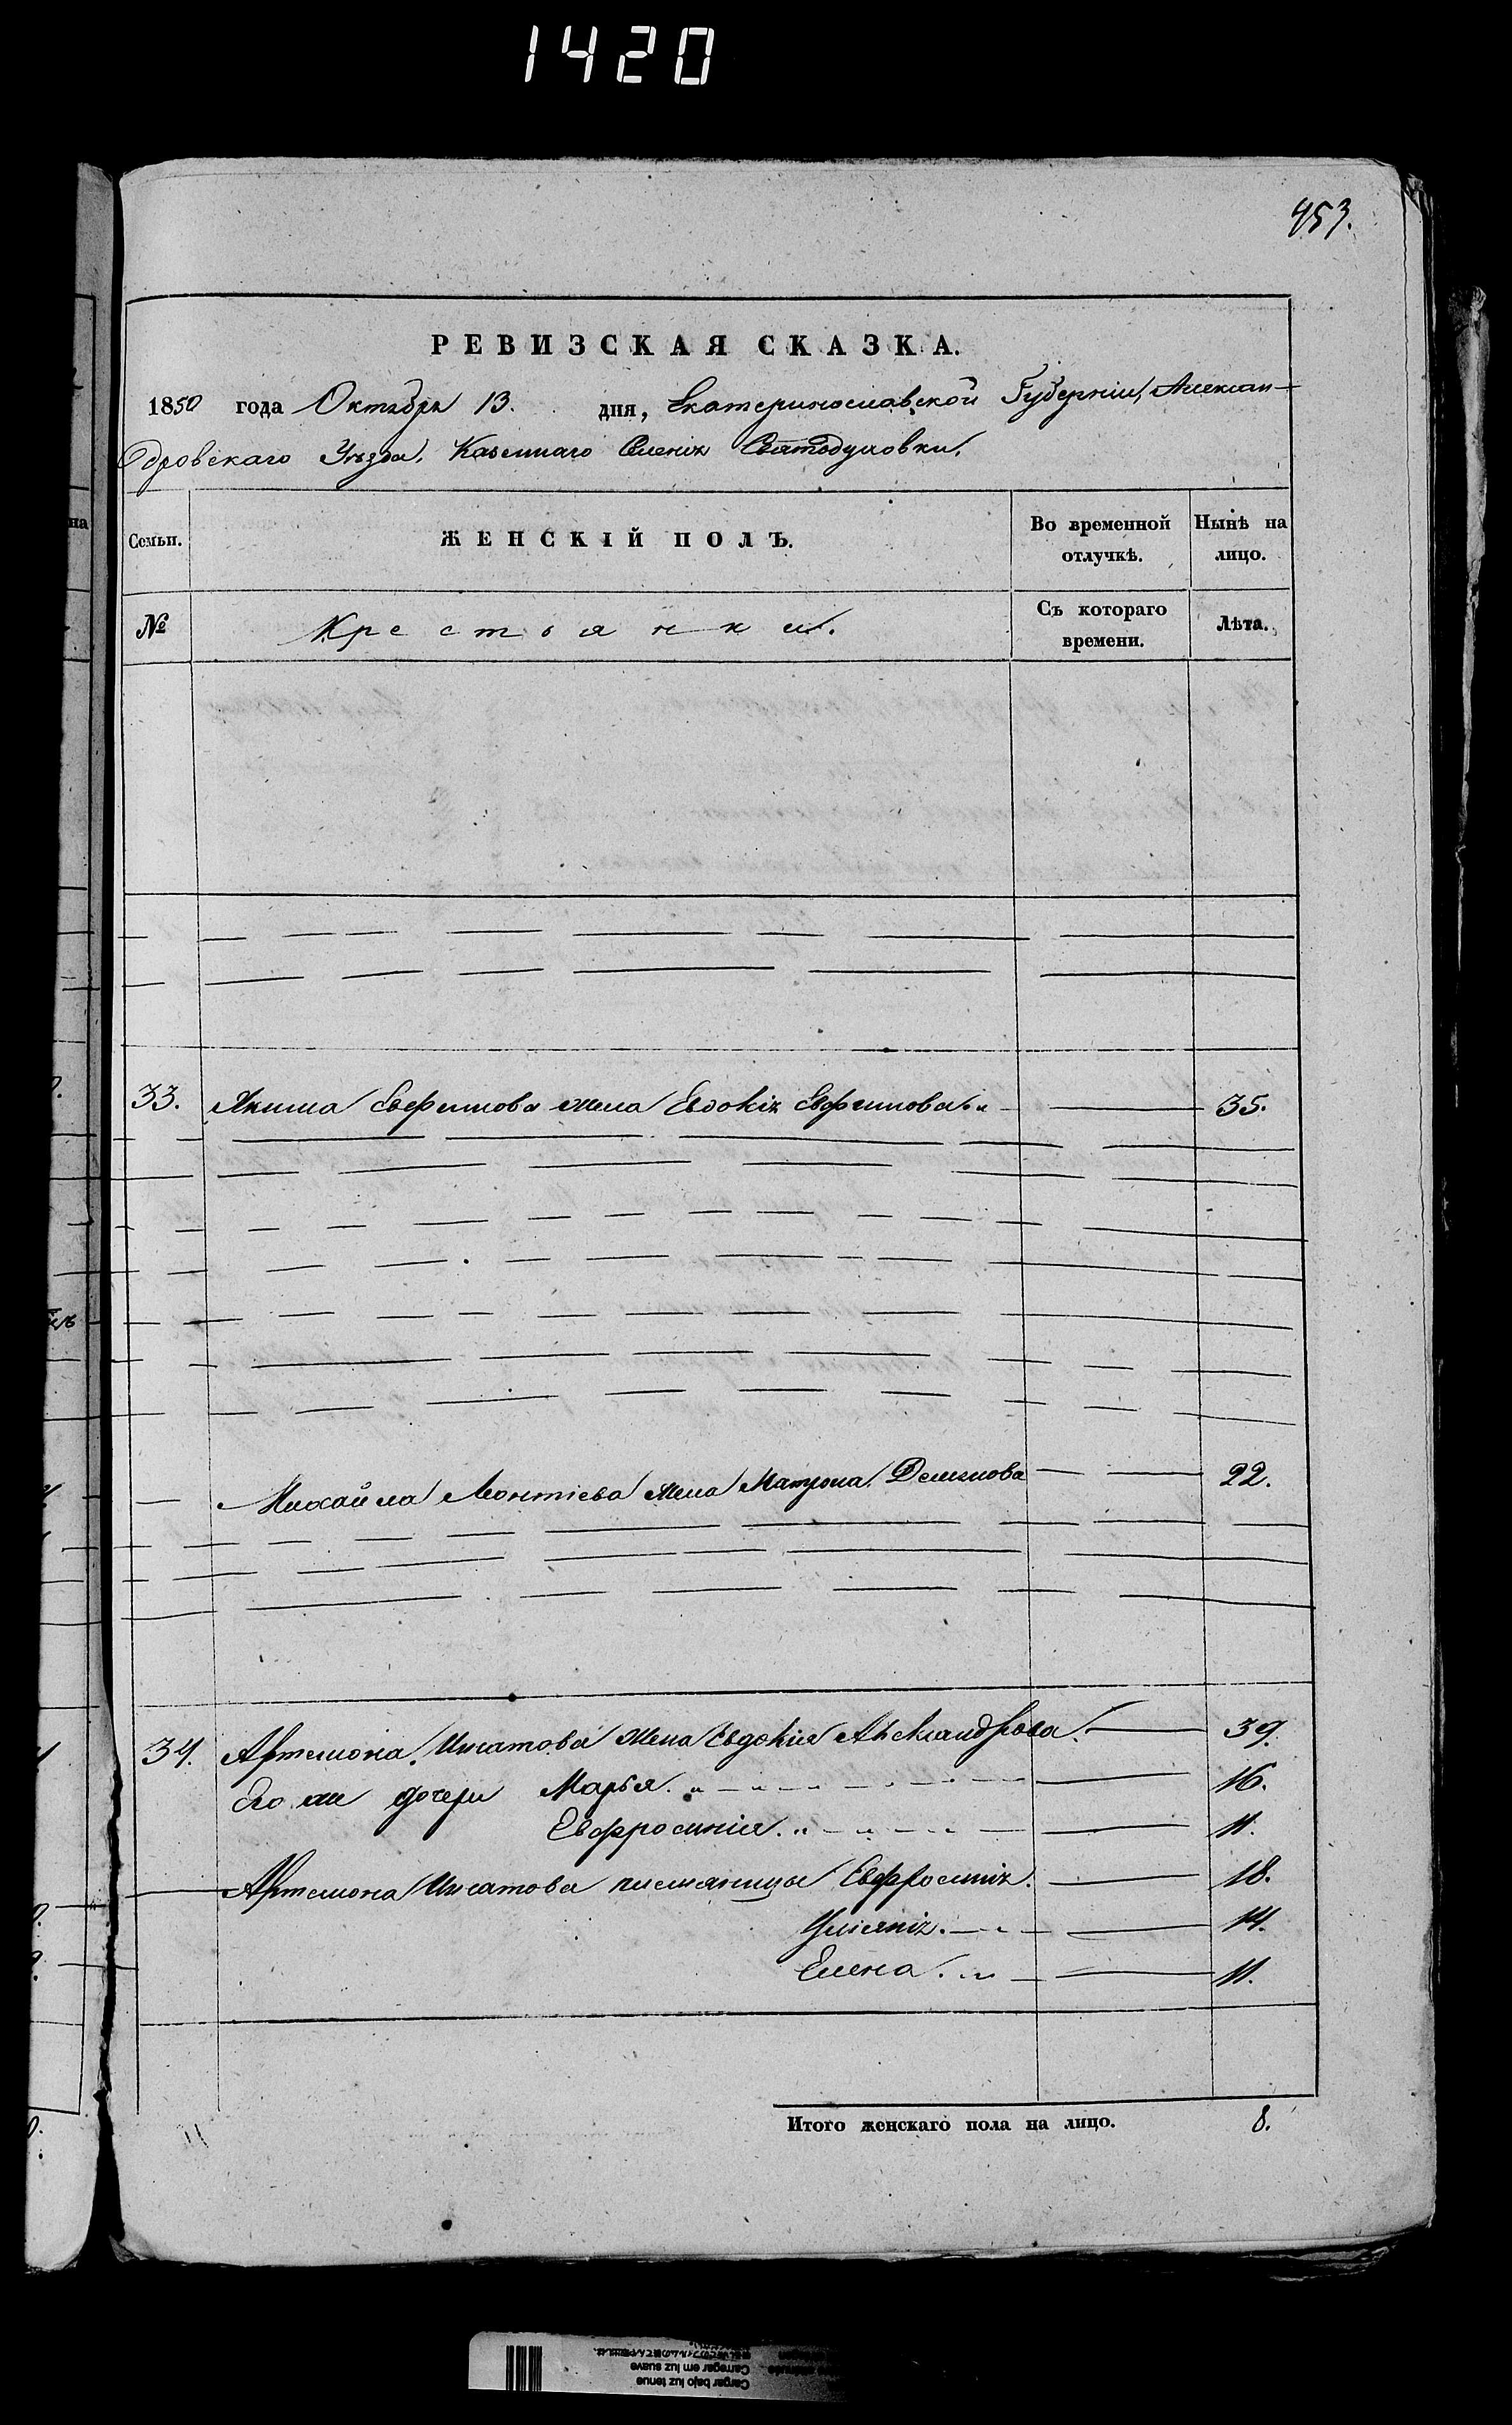 1420
453.
РЕВИЗСКАЯ СКАЗКА.
1850 года Октября 13. дня, Екатеринославской Губерніи, Алексан-
дровскаго Уѣзда, Казеннаго Селенія Святодуховки.
Семьи. ЖЕНСКІЙ ПОЛЪ. Во временной отлучкѣ. Нынѣ на лицо.
№ Крестьянки. Съ котораго времени. Лѣта.
33. Якима Ефимова жена Евдокія 35.
Михайла Леонтіева жена Матрона 22.
34. Артемона Игнатова жена Евдокія Александрова. 39.
Его же дочери Марья. 16.
Евфросинія. 11.
Артемона Игнатова племяницы Евфросинія. 18.
Уліянія. 14.
Елена. 11.
Итого женскаго пола на лицо. 8.
Carregar em luz suave
Cargar bajo luz tenue